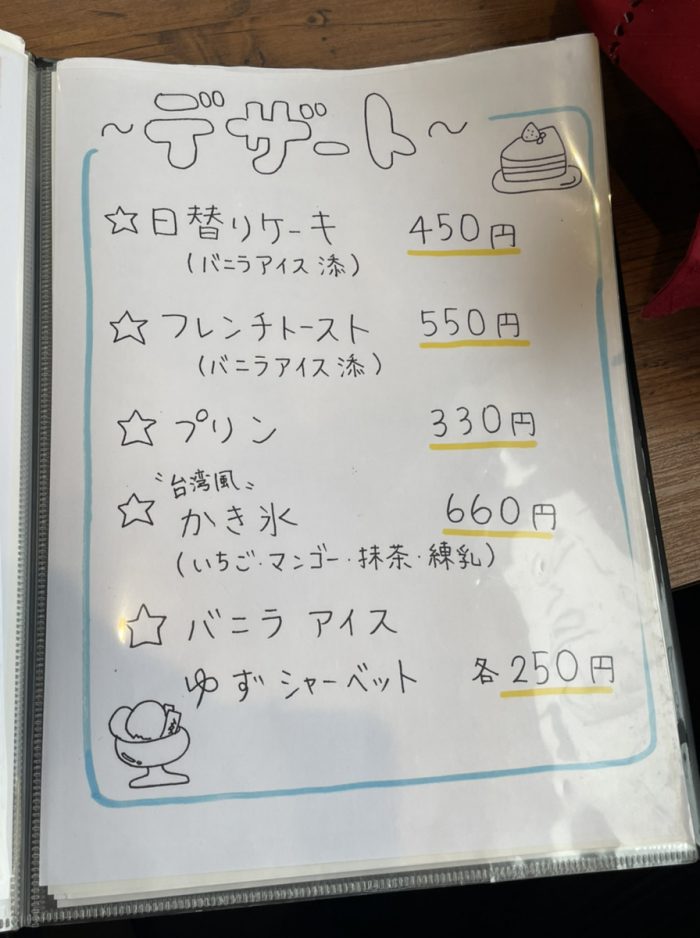 ～デザート～
☆日替りケーキ 450円
(バニラアイス添)
☆フレンチトースト 550円
(バニラアイス添)
☆プリン 330円
〝台湾風〟
☆かき氷 660円
(いちご・マンゴー・抹茶・練乳)
☆バニラ アイス
ゆずシャーベット 各250円